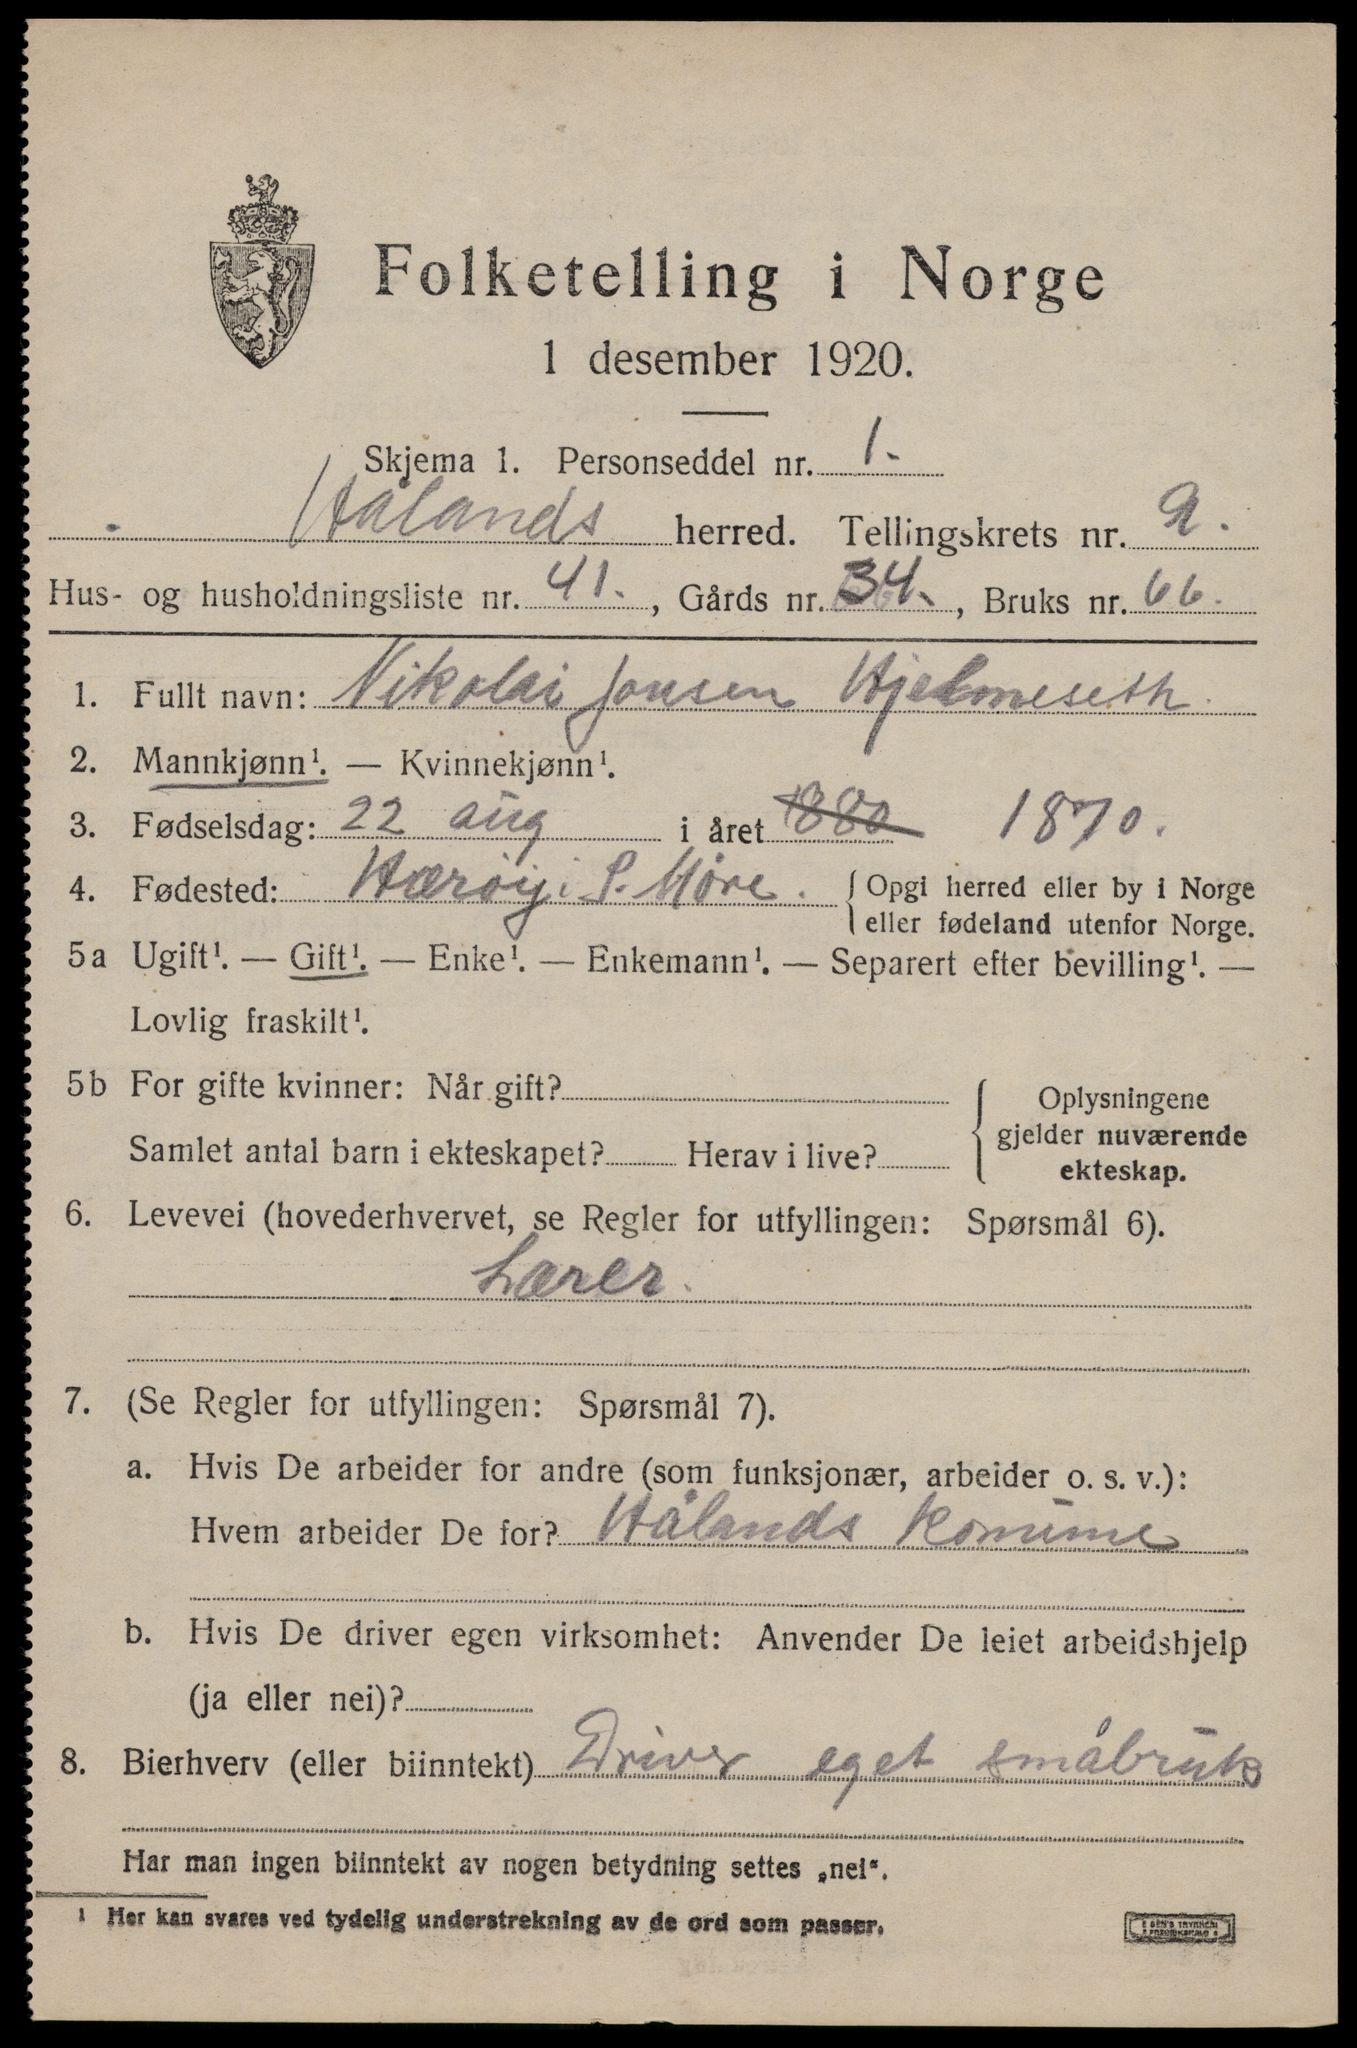 Folketelling i Norge
1 desember 1920.
Skjema 1. Personseddel nr. 1.
Hålands herred. Tellingskrets nr. 9.
Hus- og husholdningsliste nr. 41., Gårds nr. 34., Bruks nr. 66.
1. Fullt navn: Nikolai Jonsen Hjelmeseth.
2. Mannkjønn¹. — Kvinnekjønn¹.
3. Fødselsdag: 22 aug i året 1880 1870.
4. Fødested: Hærøy i S. Møre. Opgi herred eller by i Norge
eller fødeland utenfor Norge.
5a Ugift¹. — Gift¹. — Enke¹. — Enkemann¹. — Separert efter bevilling¹. —
Lovlig fraskilt¹.
5b For gifte kvinner: Når gift? Oplysningene
gjelder nuværende
ekteskap.
Samlet antal barn i ekteskapet? Herav i live?
6. Levevei (hovederhvervet, se Regler for utfyllingen: Spørsmål 6).
Lærer.
7. (Se Regler for utfyllingen: Spørsmål 7).
a. Hvis De arbeider for andre (som funksjonær, arbeider o. s. v.):
Hvem arbeider De for? Hålands komune
b. Hvis De driver egen virksomhet: Anvender De leiet arbeidshjelp
(ja eller nei)?
8. Bierhverv (eller biinntekt) Driver eget småbruk
Har man ingen biinntekt av nogen betydning settes „nei“.
¹ Her kan svares ved tydelig understrekning av de ord som passer.